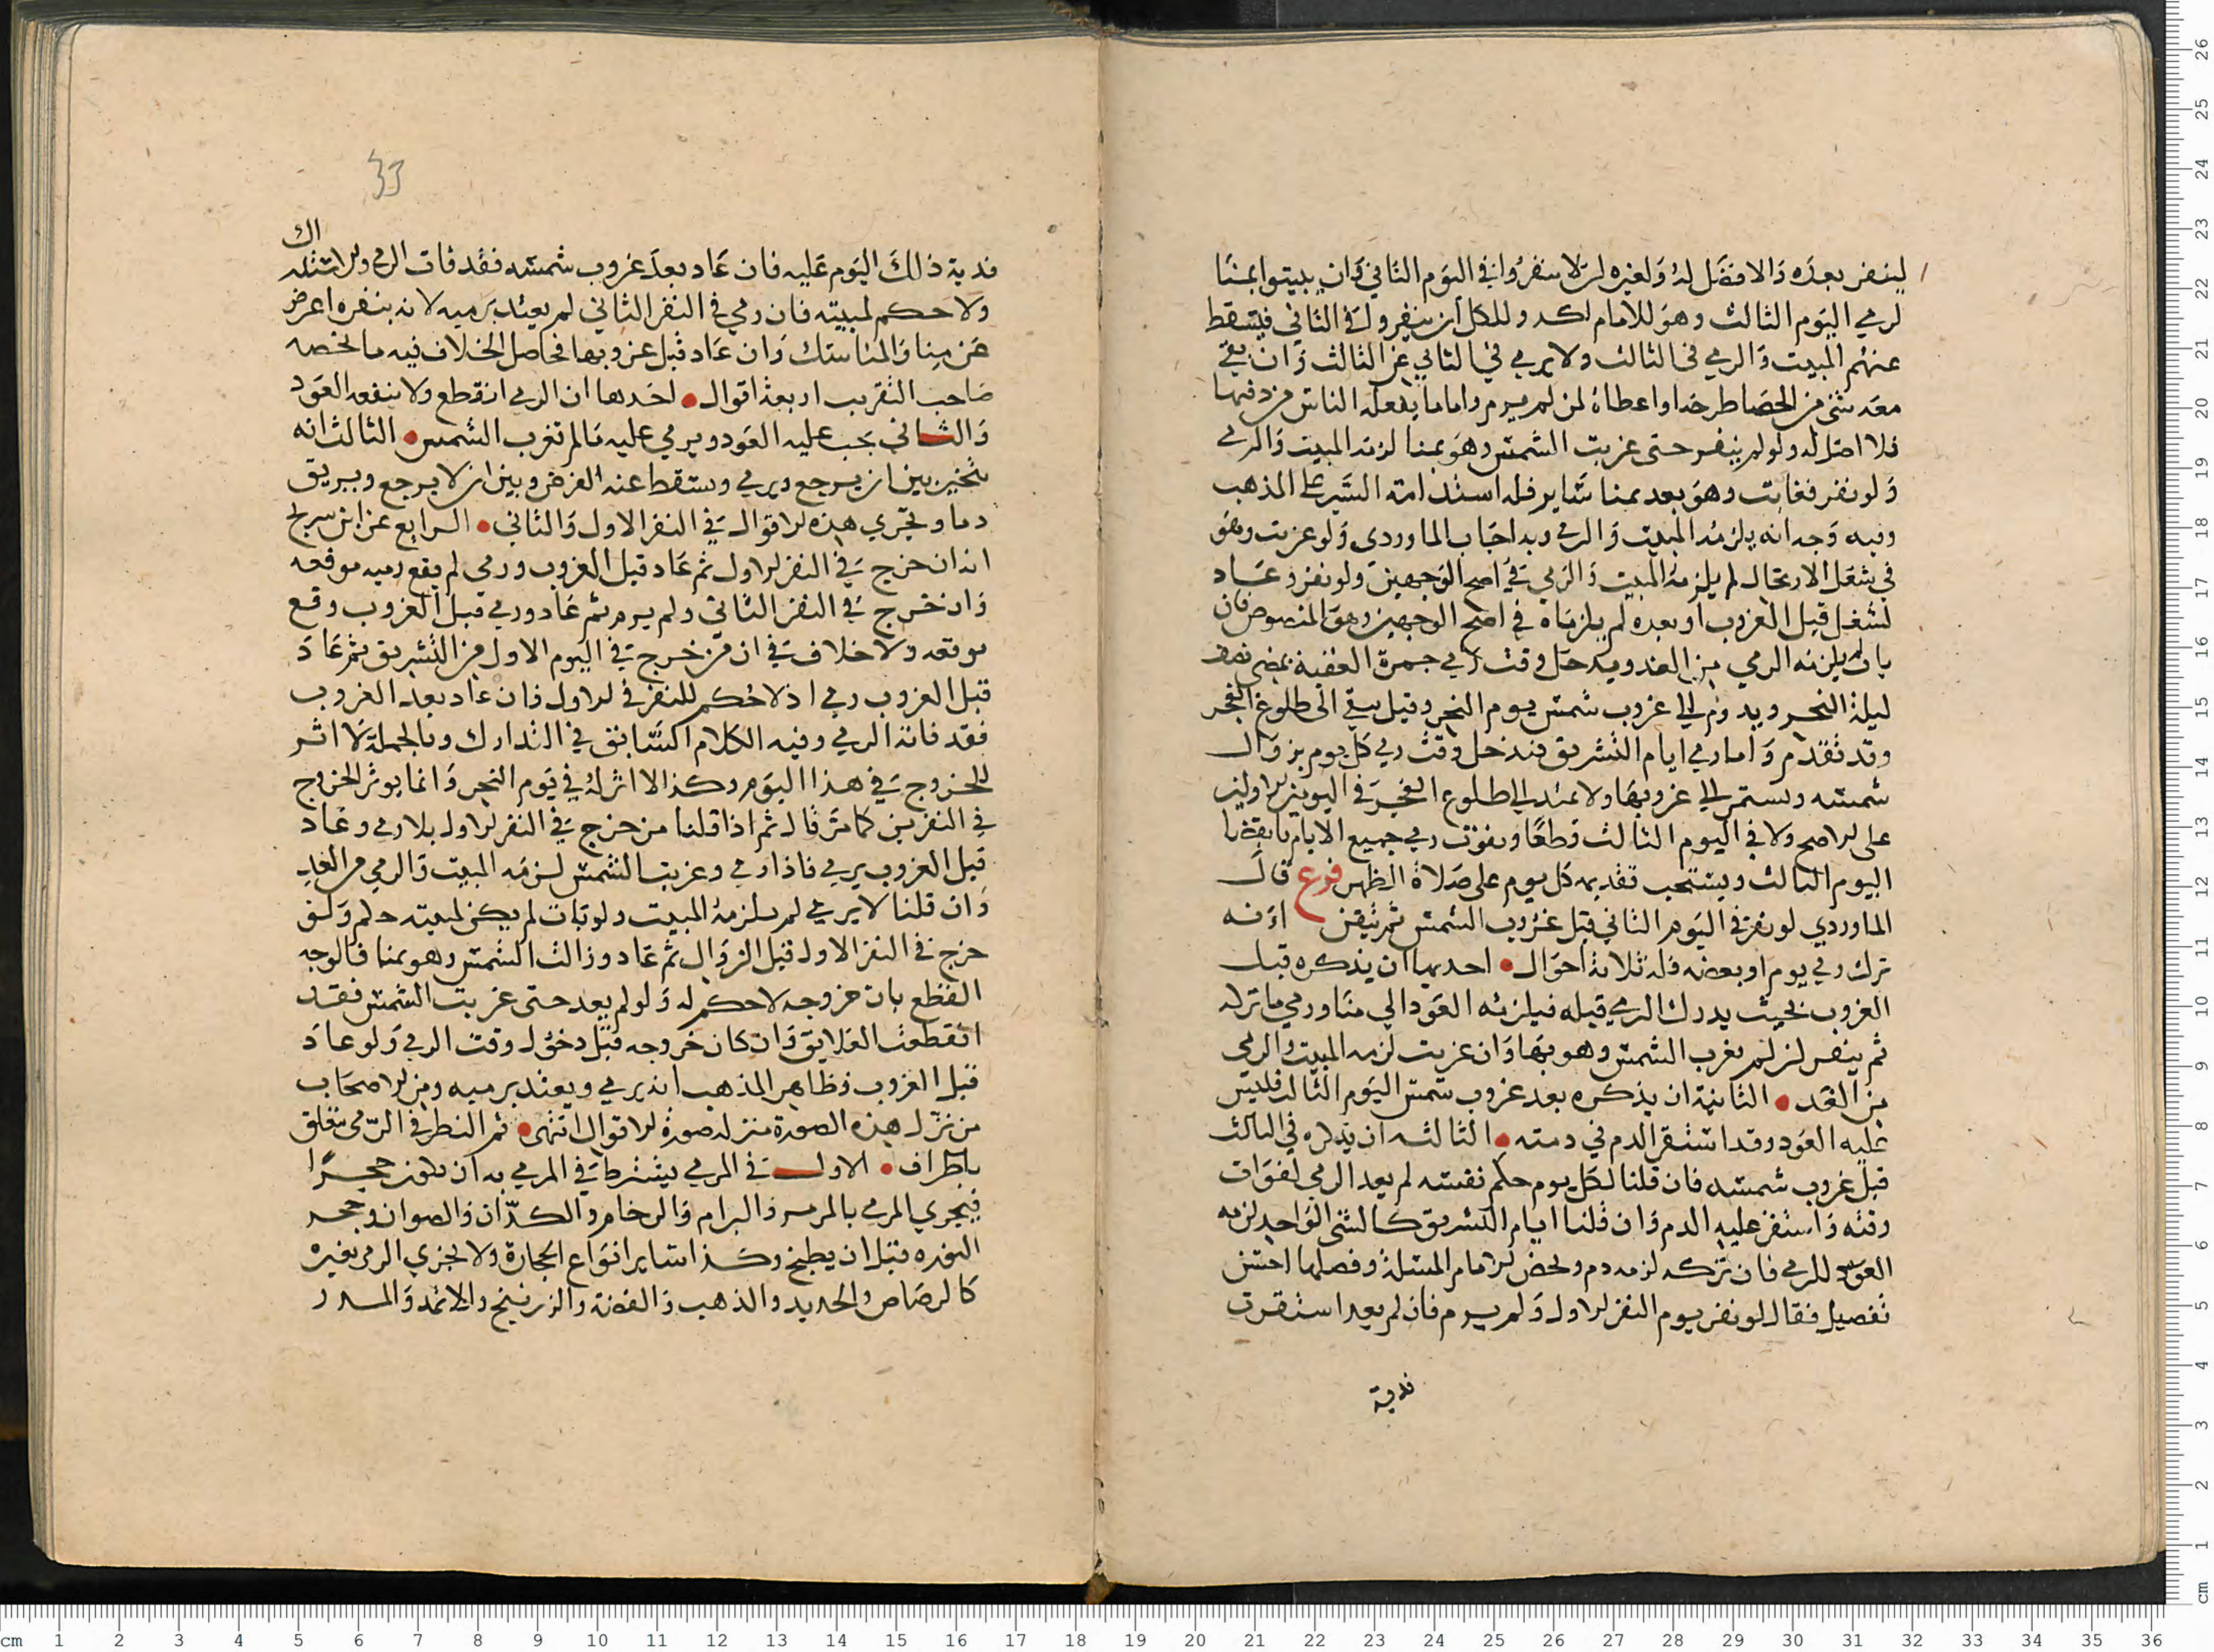 لينفر بعده والافضل له ولغيره ان لا ينفروا في اليوم الثاني وان يبيتوا بمنا
لرمي اليوم الثالث وهو للامام اكد وللكل ان ينفروا في الثاني فيسقط
عنهم المبيت والرمي في الثالث ولا يرمي في الثاني عن الثالث وان بقي
معه شئ من الحصا طرحه او اعطاه لمن لم يرم واما ما يفعله الناس من دفنها
فلا اصل له ولو لم ينفر حتى غربت الشمس وهو بمنا لزمه المبيت والرمي
ولو نفر فغابت وهو بعد بمنا سايرا فله استدامة السير على المذهب
وفيه وجه انه يلزمه المبيت والرمي وبه اجاب الماوردى ولو غربت وهو
في شغل الارتحال لم يلزمه المبيت والرمي في اصح الوجهين ولو نفر وعاد
لشغل قبل الغروب او بعده لم يلزماه في اصح الوجهين وهو المنصوص فان
بات لم يلزمه الرمي من الغد ويدخل وقت رمي جمرة العقبة بمضي نصف
ليلة النحر ويدوم الي غروب شمس يوم النحر وقيل يبقي الى طلوع الفجر
وقد تقدم واما رمي ايام التشريق فيدخل وقت رمي كل يوم بزوال
شمسه ويستمر الي غروبها ولا يمتد الي طلوع الفجر في اليومين الاولين
على الاصح ولا في اليوم الثالث قطعا ويفوت رمي جميع الايام
اليوم الثالث ويستحب تقديمه كل يوم على صلاة الظهر فرع قال
الماوردي لو نفر في اليوم الثاني قبل غروب الشمس ثم تيقن انه
ترك رمي يوم او بعضه فله ثلاثة احوال احدها ان يذكره قبل
الغروب بحيث يدرك الرمي قبله فيلزمه العود الي منا ورمي ما تركه
ثم ينفر ان لم تغرب الشمس وهو بها وان غربت لزمه المبيت والرمي
من الغد الثانية ان يذكره بعد غروب شمس اليوم الثالث فليس
عليه العود وقد استقر الدم في دمته الثالثه ان يذكره في الثالث
قبل غروب شمسه فان قلنا لكل يوم حكم نفسه لم يعد الرمي لفوات
وقته واستقر عليه الدم وان قلنا ايام التشريق كالشئ الواحد لزمه
العود للرمي فان تركه لزمه دم ولخص الامام المسئلة وفصلها احسن
تفصيل فقال لو نفر يوم النفر الاول ولم يرم فان لم يعد استقرت
فدية
33
فدية ذلك اليوم عليه فان عاد بعد غروب شمسه فقد فات الرمي
ولا حكم لمبيته فان رمي في النفر الثاني لم يعتد برميه لانه بنفره اعرض
عن منا والمناسك وان عاد قبل غروبها فحاصل الخلاف فيه ما لخصه
صاحب التقريب اربعة اقوال احدها ان الرمي انقطع ولا ينفعه العود
والثاني يجب عليه العود ويرمي عليه ما لم تغرب الشمس الثالث انه
يتخير بين ان يرجع ويرمي ويسقط عنه الفرض وبين ان لا يرجع ويريق
دما وتجري هذه الاقوال في النفر الاول والثاني الرابع عن ابن سريج
انه ان خرج في النفر الاول ثم عاد قبل الغروب ورمي لم يقع رميه موقعه
وان خرج في النفر الثاني ولم يرم ثم عاد ورمي قبل الغروب وقع
موقعه ولا خلاف في ان من خرج في اليوم الاول من التشريق ثم عاد
قبل الغروب رمي اذ لا حكم للنفر في الاول فان عاد بعد الغروب
فقد فاته الرمي وفيه الكلام السابق في التدارك وبالجملة لا اثر
للخروج في هذا اليوم وكذا لا اثر له في يوم النحر وانما يوثر الخروج
في النفرين كما مر قال ثم اذا قلنا من خرج في النفر الاول بلا رمي وعاد
قبل الغروب يرمي فاذا رمي وغربت الشمس لزمه المبيت والرمي من الغد
وان قلنا لا يرمي لم يلزمه المبيت ولو بات لم يكن لمبيته حكم ولو
خرج في النفر الاول قبل الزوال ثم عاد وزالت الشمس وهو بمنا فالوجه
القطع بان خروجه لا حكم له ولو لم يعد حتى غربت الشمس فقد
انقطعت العلايق وان كان خروجه قبل دخول وقت الرمي ولو عاد
قبل الغروب فظاهر المذهب انه يرمي ويعتد برميه ومن الاصحاب
من نزل هذه الصورة منزله صورة الاقوال انتهى ثم النظر في الرمي يتعلق
باطراف الاول في المرمي يشترط في المرمي به ان يكون حجرا
فيجري المرمي بالمرمر والبرام والرخام والكدان والصوان وحجر
النوره قبل ان يطبخ وكذا ساير انواع الحجارة ولا يجزي الرمي بغيره
كالرصاص والحديد والذهب والفضة والزرنيخ والاثمد والمدر